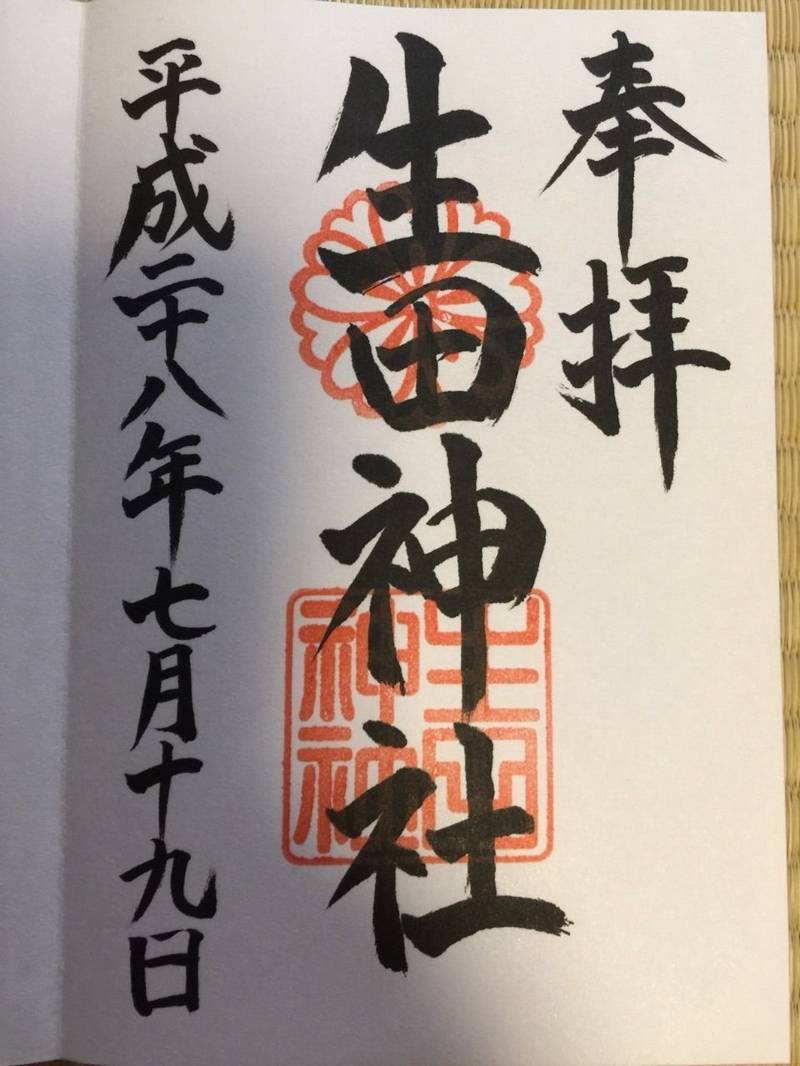 奉拝
生田神社
生田神社
平成二十八年七月十九日